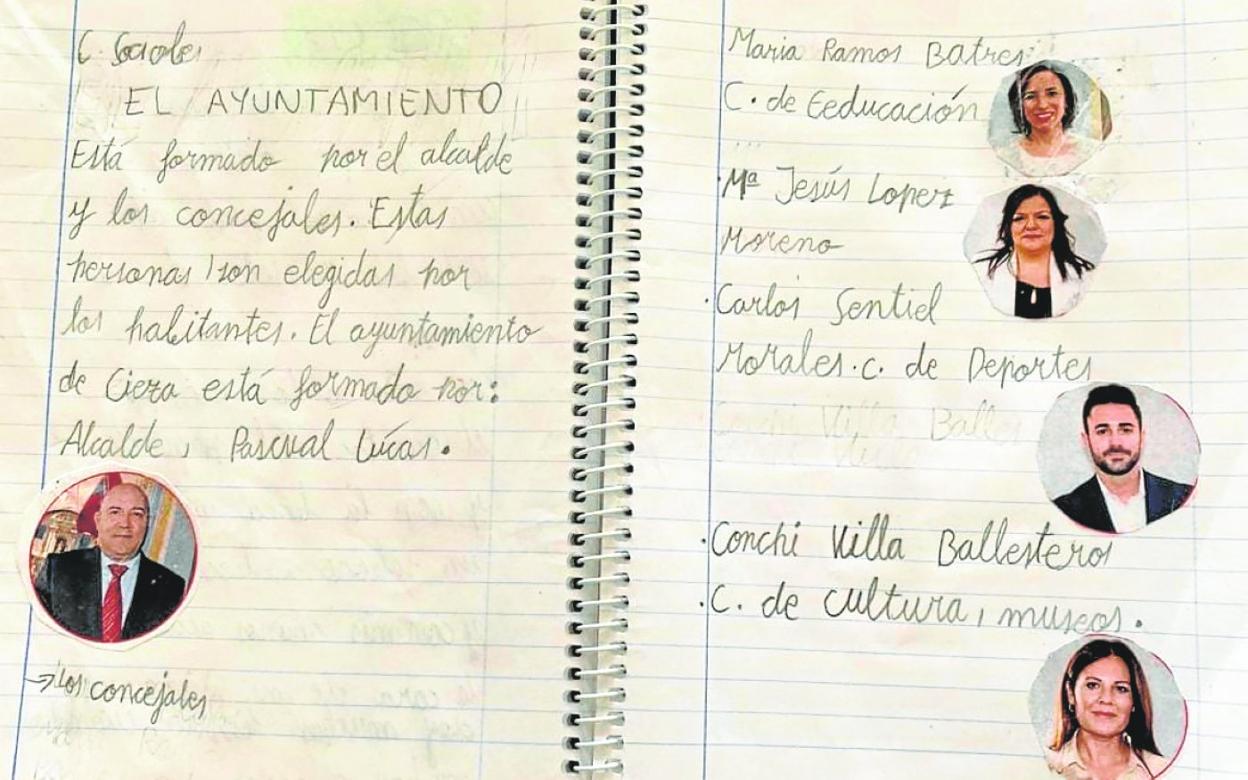 C. Sociales
EL AYUNTAMIENTO
Está formado por el alcalde
y los concejales. Estas
personas son elegidas por
los habitantes. El ayuntamiento
de Cieza está formado por:
Alcalde, Pascual Lúcas.
→ Los concejales
Maria Ramos Batres
C. de Eeducación
·Mª Jesús Lopez
Moreno
·Carlos Sentiel
Morales. C. de Deportes
Conchi Villa Balle
·Conchi Villa Ballesteros
·C. de cultura, museos.